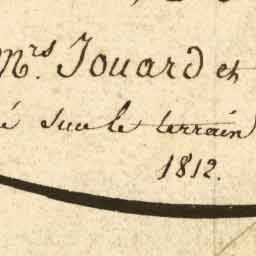 Mrs. Jouard et
é sur le terrain
1812.